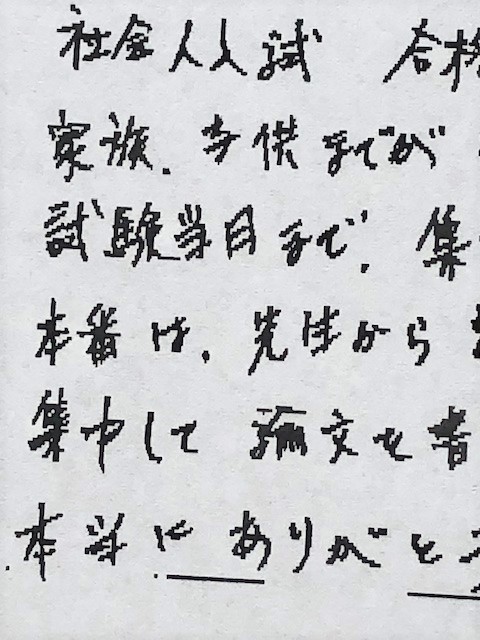 社会人入試 合格
家族、子供までが
試験当日まで、集
本番は、先生から
集中して 論文を書
本当に ありがと